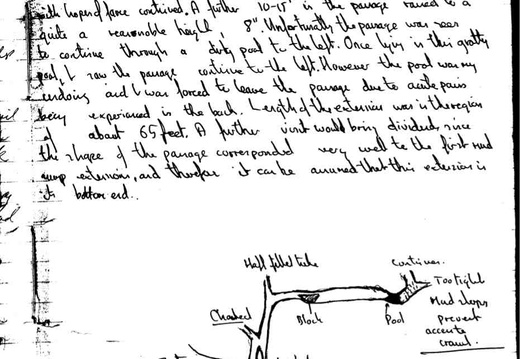 with hopes of fame continued. A further 10-15' in the passage raised to a
quite a reasonable height, 8". Unfortunately the passage was seen
to continue through a dirty pool to the left. Once lying in this grotty
pool, I saw the passage continue to the left. However the pool was my
undoing and I was forced to leave the passage due to acute pains
being experienced in the back. Length of the extension was in the region
of about 65 feet. A further visit would bring dividends, since
the shape of the passage corresponded very well to the first mud
sump extension, and therefore it can be assumed that this extension is
its bottom end..
Half filled tube
continues.
Too tight
Choked
Block
Pool
Mud slopes
prevent
access
crawl.